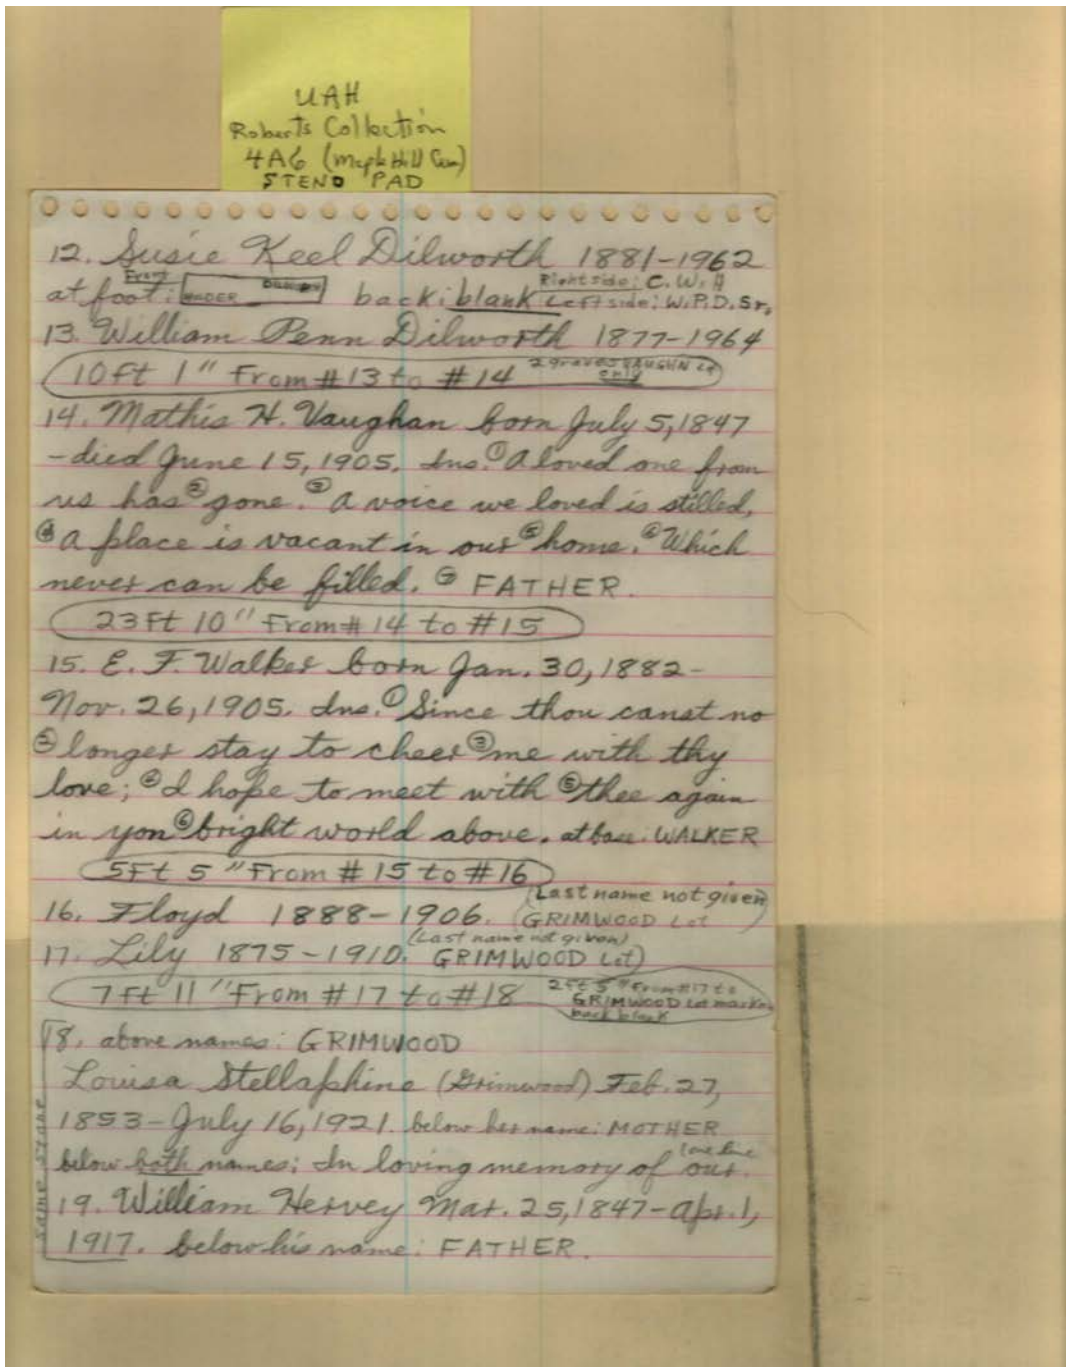 UAH
Roberts Collection
4A6 (Maple Hill Cem)
STENO PAD
12. Susie Keel Dilworth 1881-1962
at foot: Front HUNDER DILWORTH back: blank Right side: C.W.H
Left side: W.P.D. Sr.
13. William Penn Dilworth 1877-1964
10 ft 1" From #13 to #14 2 graves VAUGHN Lot
only
14. Mathis H. Vaughan born July 5, 1847
-died June 15, 1905. Ins. ① A loved one from
us has ② gone. ③ A voice we loved is stilled,
④ a place is vacant in our ⑤ home. ⑥ Which
never can be filled. ⑦ FATHER.
23 Ft 10" From #14 to #15
15. E. F. Walker born Jan. 30, 1882-
Nov. 26, 1905. Ins. ① Since thou canst no
② longer stay to cheer ③ me with thy
love; ④ I hope to meet with ⑤ thee again
in yon ⑥ bright world above. at base: WALKER
5 Ft 5" From #15 to #16
(Last name not given)
16. Floyd 1888-1906. GRIMWOOD Lot
(Last name not given)
17. Lily 1875-1910. GRIMWOOD Lot)
7 ft 11" From #17 to #18 2 ft 5" From #17 to
GRIMWOOD Lot marker
back blank
18. above names: GRIMWOOD
Louisa Stellaphine (Grimwood) Feb. 27,
1853-July 16, 1921. below her name: MOTHER
below both names: In loving memory of our. (one line
19. William Hervey Mar. 25, 1847-Apr. 1,
1917. below his name: FATHER.
same stone